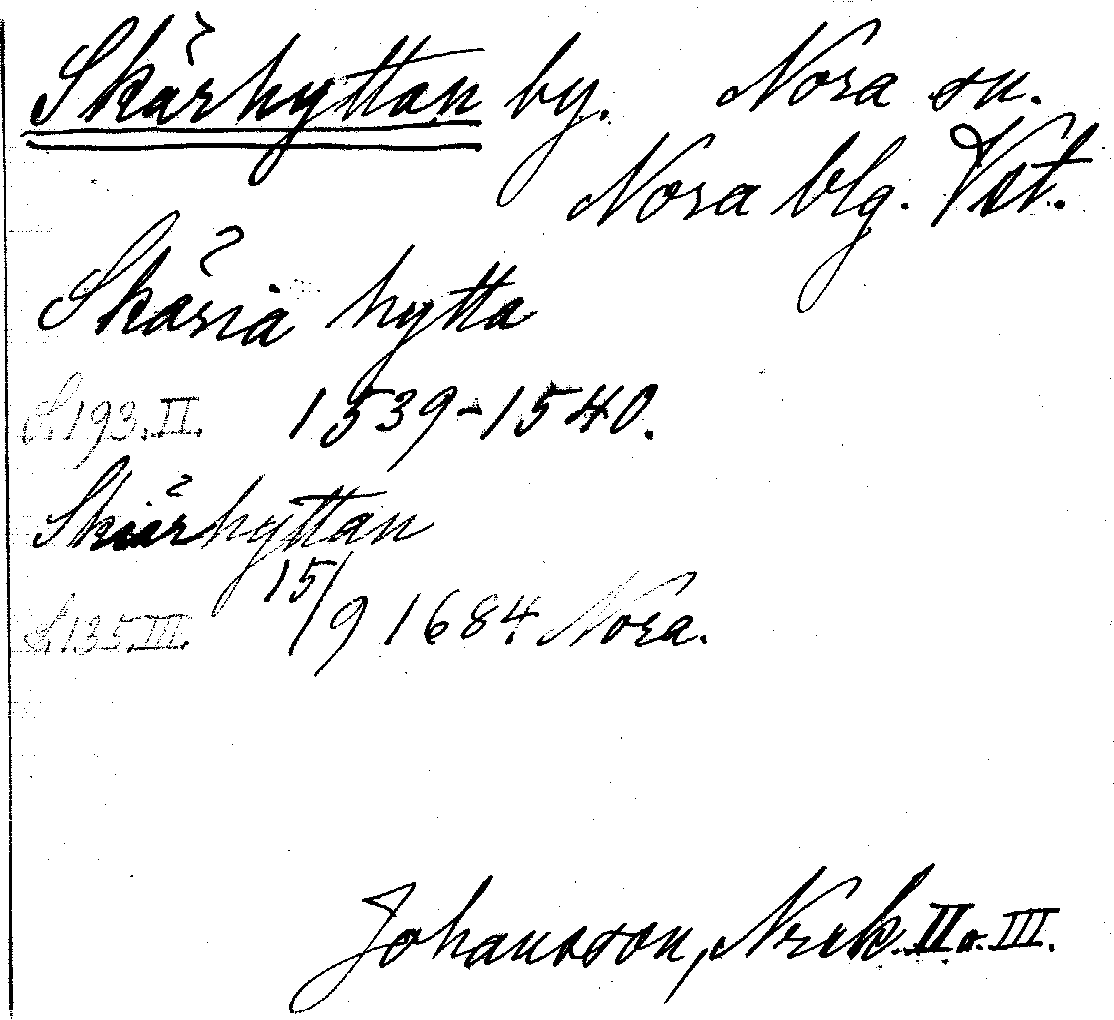 Skärhyttan by. Nora sn.
Nora blg. Vstm.
Skäria hytta
S. 193. II. 1539-1540.
Skiärhyttan
S. 135. III. 15/9 1684 Nora.
Johansson, Norek. II o. III.